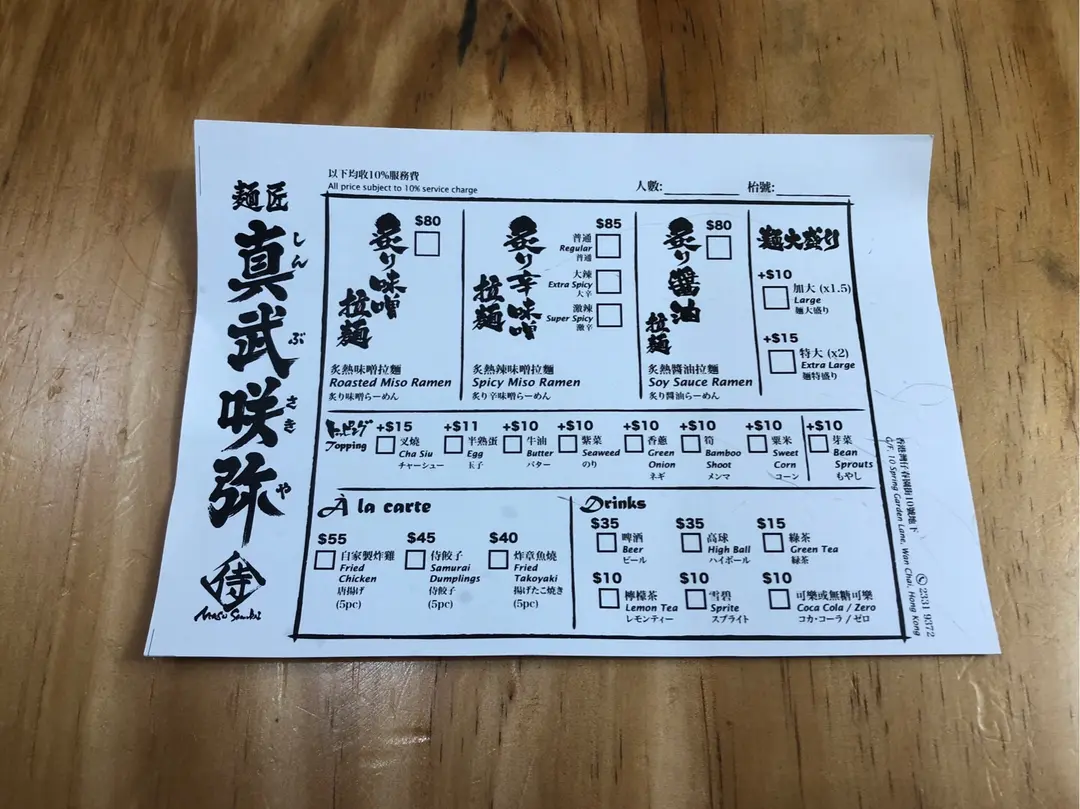 麵匠
真武咲弥
しん
ぶ
さき
や
侍
以下均收10%服務費
All price subject to 10% service charge
人數:
枱號:
炙り味噌
拉麵
$80
炙熱味噌拉麵
Roasted Miso Ramen
炙り味噌らーめん
炙り辛味噌
拉麵
$85
普通
Regular
普通
大辣
Extra Spicy
大辛
激辣
Super Spicy
激辛
炙熱辣味噌拉麵
Spicy Miso Ramen
炙り辛味噌らーめん
炙り醬油
拉麵
$80
炙熱醬油拉麵
Soy Sauce Ramen
炙り醬油らーめん
麵大盛り
+$10
加大 (x1.5)
Large
麵大盛り
+$15
特大 (x2)
Extra Large
麵特盛り
トッピング
Topping
+$15
叉燒
Cha Siu
チャーシュー
+$11
半熟蛋
Egg
玉子
+$10
牛油
Butter
バター
+$10
紫菜
Seaweed
のり
+$10
香蔥
Green
Onion
ネギ
+$10
筍
Bamboo
Shoot
メンマ
+$10
粟米
Sweet
Corn
コーン
+$10
芽菜
Bean
Sprouts
もやし
À la carte
$55
自家製炸雞
Fried
Chicken
唐揚げ
(5pc)
$45
侍餃子
Samurai
Dumplings
侍餃子
(5pc)
$40
炸章魚燒
Fried
Takoyaki
揚げたこ焼き
(5pc)
Drinks
$35
啤酒
Beer
ビール
$35
高球
High Ball
ハイボール
$15
綠茶
Green Tea
緑茶
$10
檸檬茶
Lemon Tea
レモンティー
$10
雪碧
Sprite
スプライト
$10
可樂或無糖可樂
Coca Cola / Zero
コカ・コーラ / ゼロ
香港灣仔春園街10號地下
G/F, 10 Spring Garden Lane, Wan Chai, Hong Kong
2331 9372